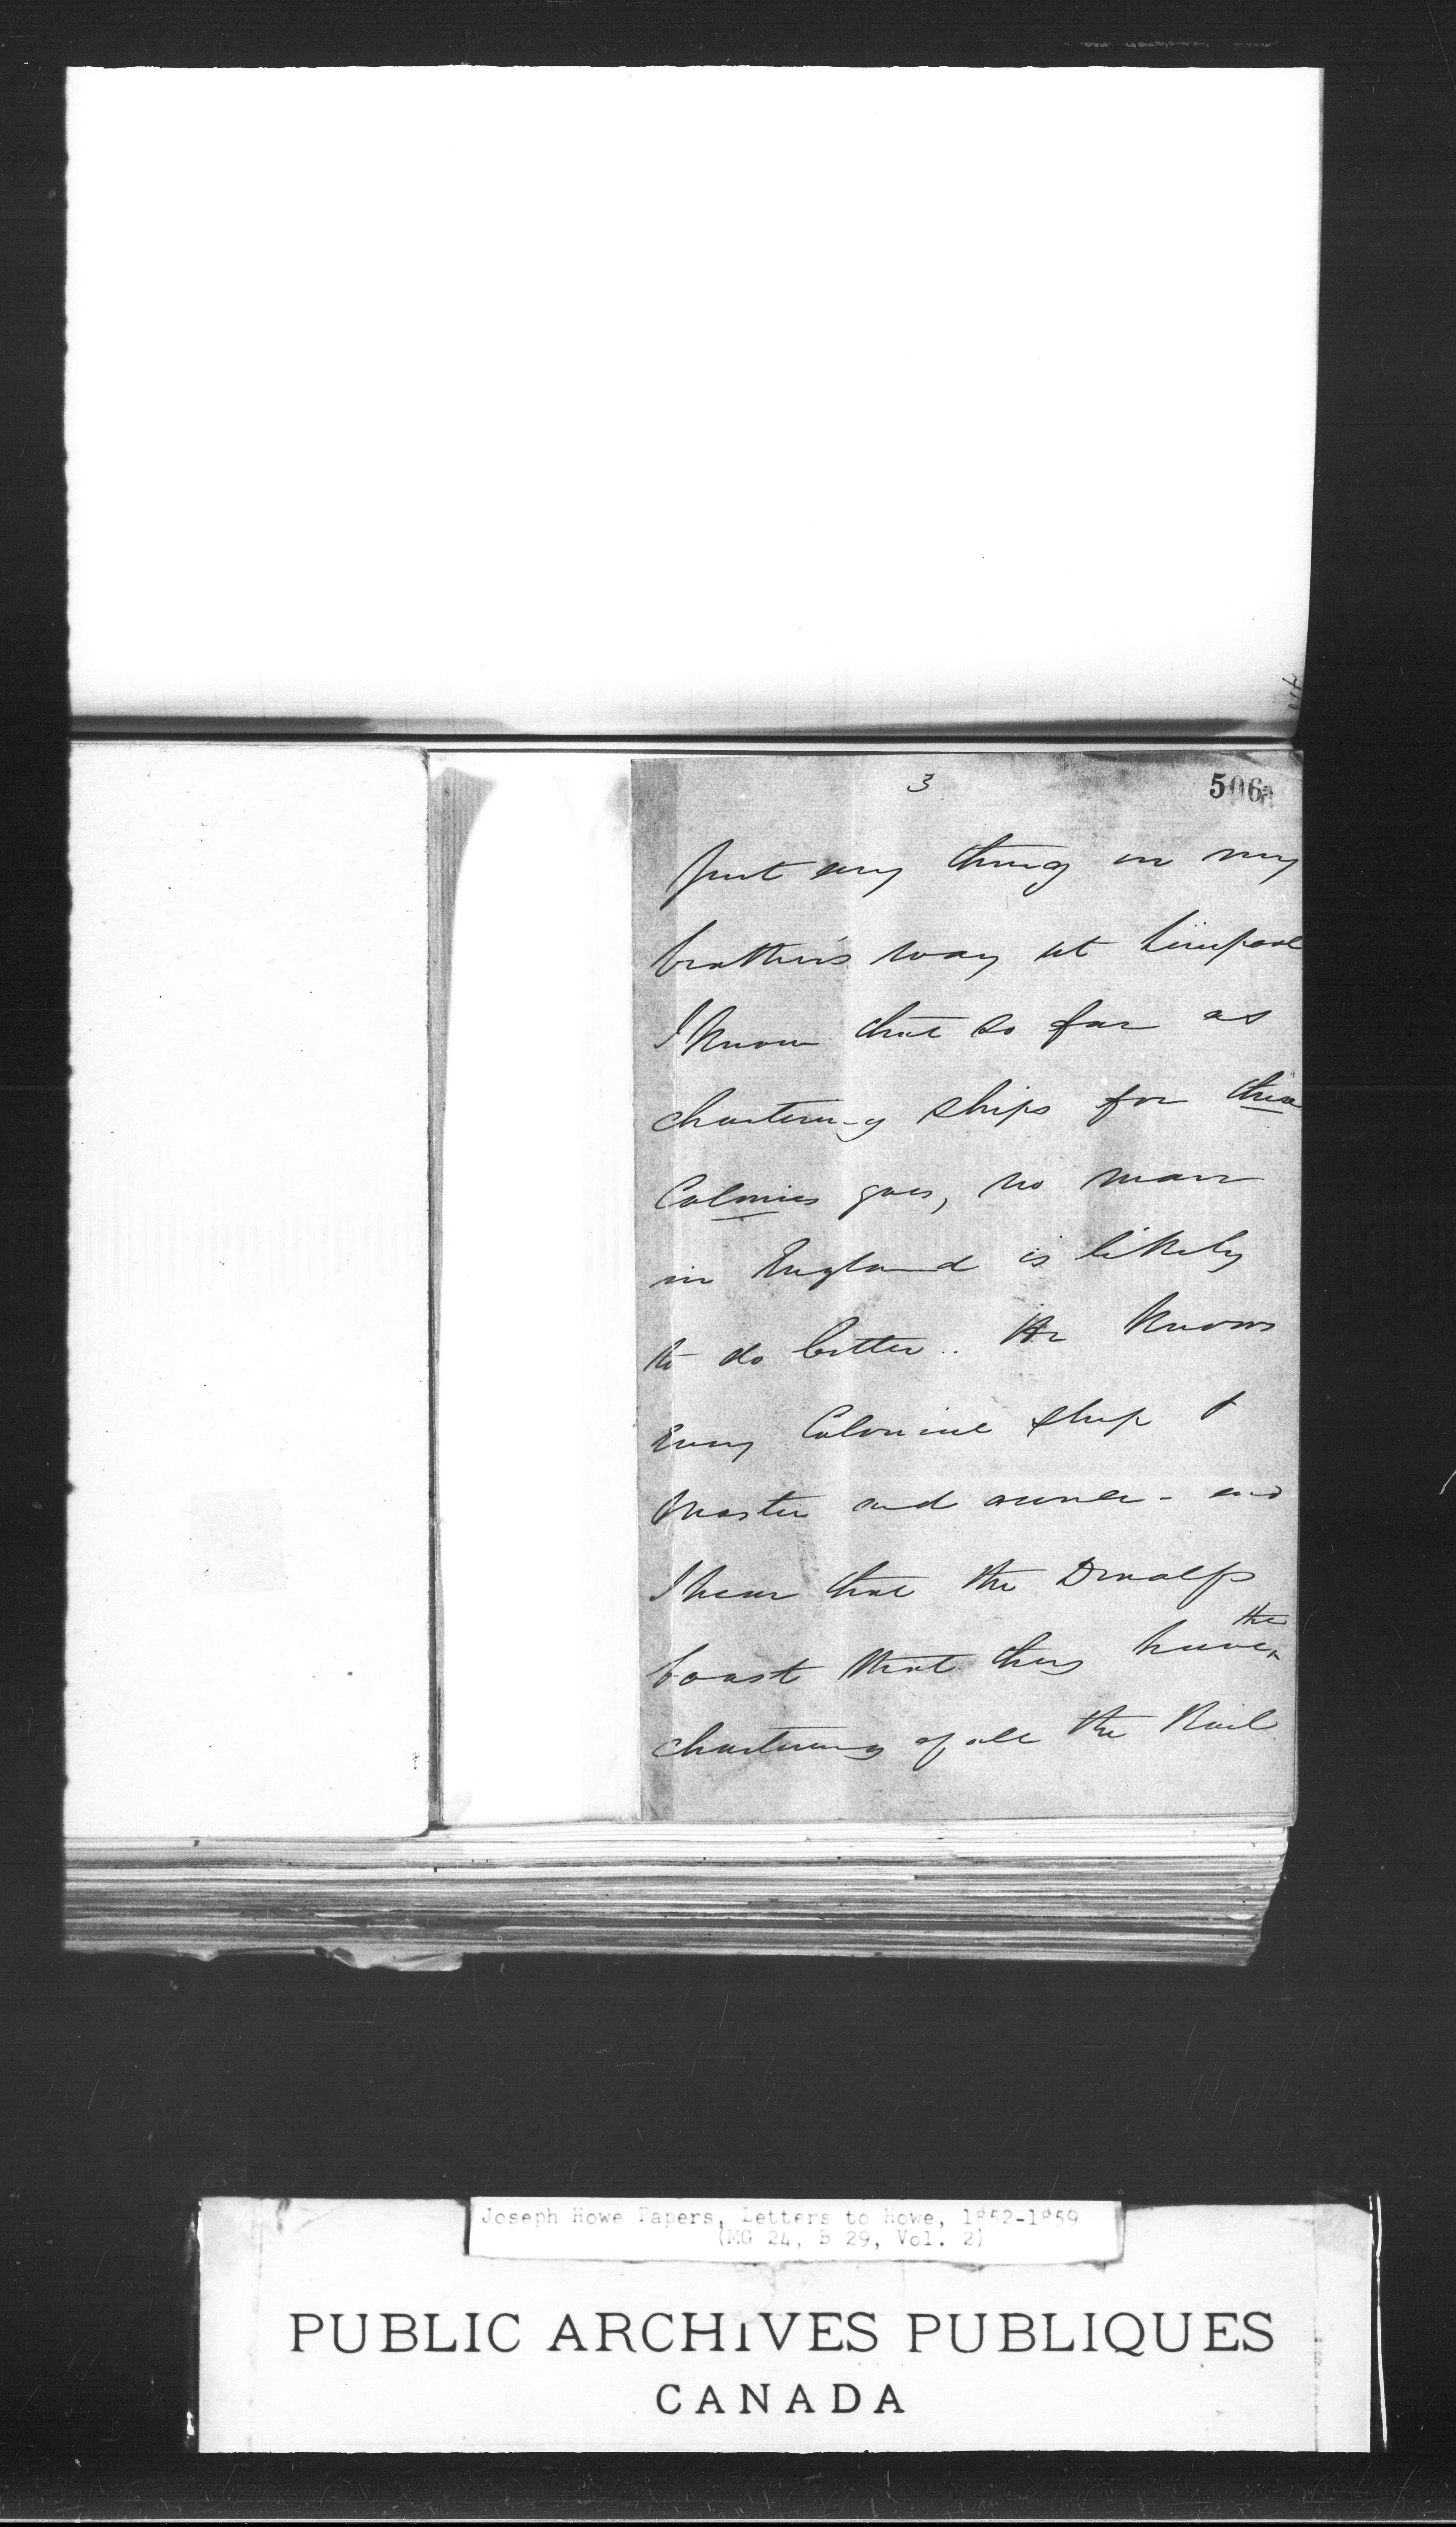 3
506a
put any thing in my
brother's way at Liverpool
I know that so far as
chartering ships for these
Colonies goes, no man
in England is likely
to do better.. He knows
Every Colonial ship &
Master and owner - and
I hear that the
boast that they have the
chartering of all the Rail
Joseph Howe Papers, Letters to Howe, 1852-1859
(MG 24, B 29, Vol. 2)
PUBLIC ARCHIVES PUBLIQUES
CANADA